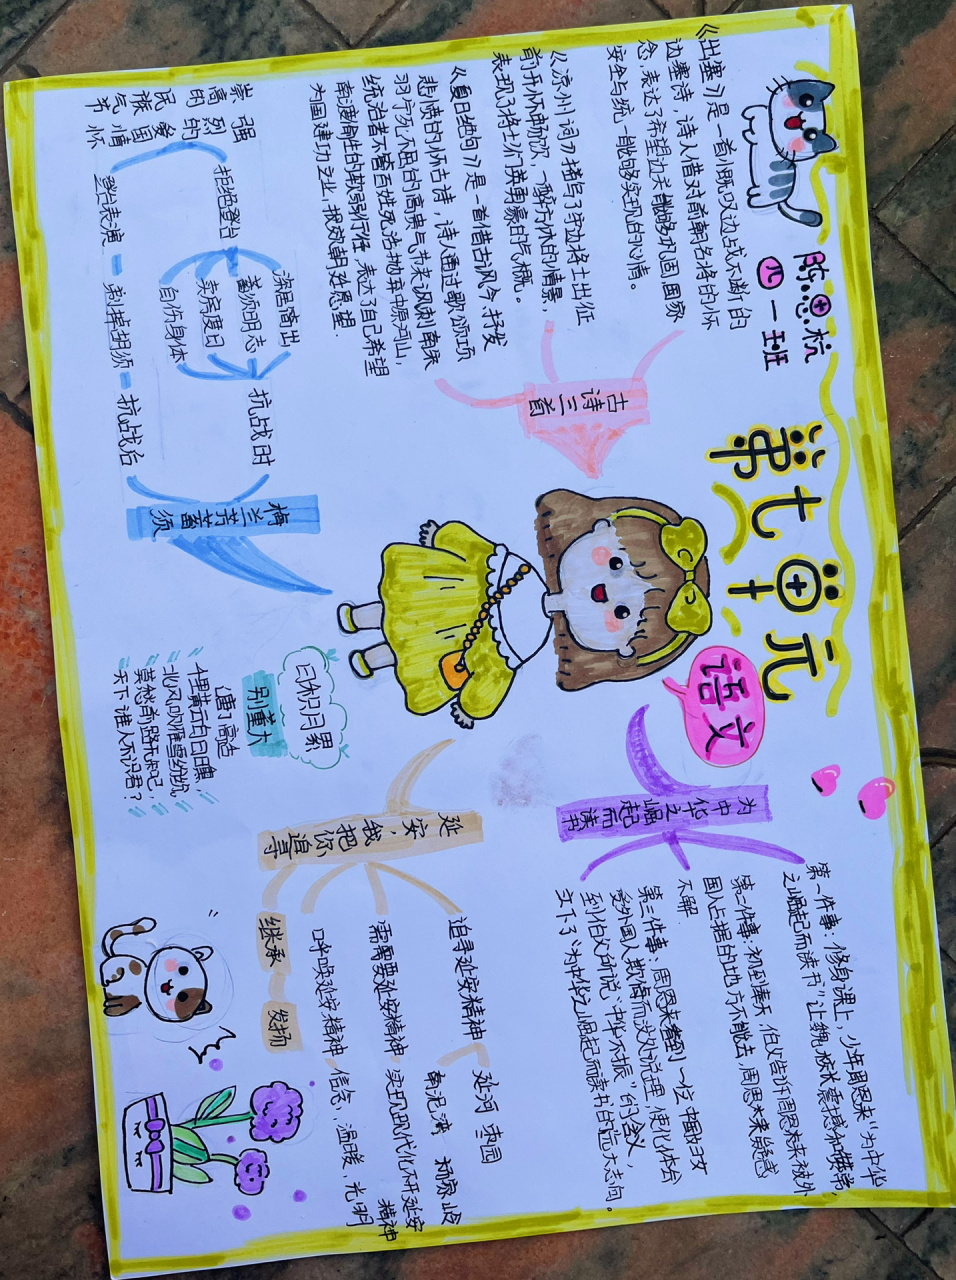 陈思杭
四一班
第七单元
语文
《出塞》是一首慨叹边战不断的
边塞诗，诗人借对前朝名将的怀
念，表达了希望边关能够巩固，国家
安全与统一能够实现的心情。
《凉州词》描写了守边将士出征
前开怀畅饮、一醉方休的情景，
表现了将士们英勇豪的气概。
《夏日绝句》是一首借古讽今、抒发
悲愤的怀古诗，诗人通过歌颂项
羽宁死不屈的高贵气节来讽刺南宋
统治者不管百姓死活抛弃中原河山，
南渡偷生的软弱行径，表达了自己希望
为国建功立业，报效朝廷愿望
古诗三首
为中华之崛
起而读书
第一件事：修身课上，少年周恩来“为中华
之崛起而读书”让魏校长震撼和赞赏
第二件事：初到奉天，伯父告诉周恩来被外
国人占据的地方不能去，周恩来疑惑
不解
第三件事：周恩来看到一位中国妇女
受外国人欺侮而没处说理，使他体会
到伯父所说“中华不振”的含义，
立下了“为中华之崛起而读书的远大志向。
梅兰芳蓄
须
抗战时
深居简出
蓄须明志
卖房度日
自伤身体
拒绝登台
抗战后
剃掉胡须
登台表演
崇高的民族气节
强烈的爱国情怀
延安，我把
你追寻
追寻延安精神
延河 枣园
南泥湾 杨家岭
需要延安精神
实现现代化不开延安
精神
呼唤延安精神
信念，温暖，光明
继承
发扬
日积月累
别董大
（唐）高适
千里黄云白日曛，
北风吹雁雪纷纷。
莫愁前路无知己，
天下谁人不识君？